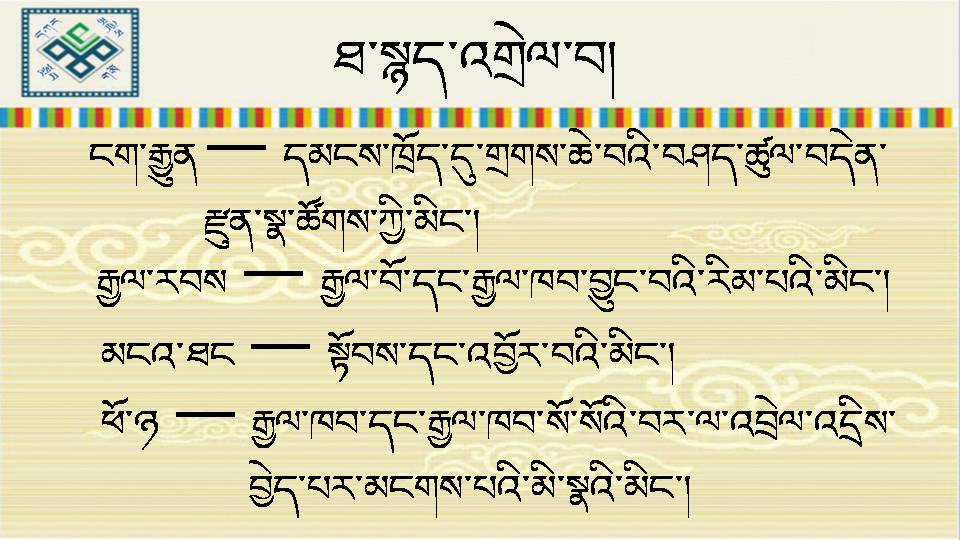 ཐ་སྙད་འགྲེལ་བ།
ངག་རྒྱུན — དམངས་ཁྲོད་དུ་གྲགས་ཆེ་བའི་བཤད་ཚུལ་བདེན་
རྫུན་སྣ་ཚོགས་ཀྱི་མིང་།
རྒྱལ་རབས — རྒྱལ་བོ་དང་རྒྱལ་ཁབ་བྱུང་བའི་རིམ་པའི་མིང་།
མངའ་ཐང — སྟོབས་དང་འབྱོར་བའི་མིང་།
ཕོ་ཉ — རྒྱལ་ཁབ་དང་རྒྱལ་ཁབ་སོ་སོའི་བར་ལ་འབྲེལ་འདྲིས་
བྱེད་པར་མངགས་པའི་མི་སྣའི་མིང་།